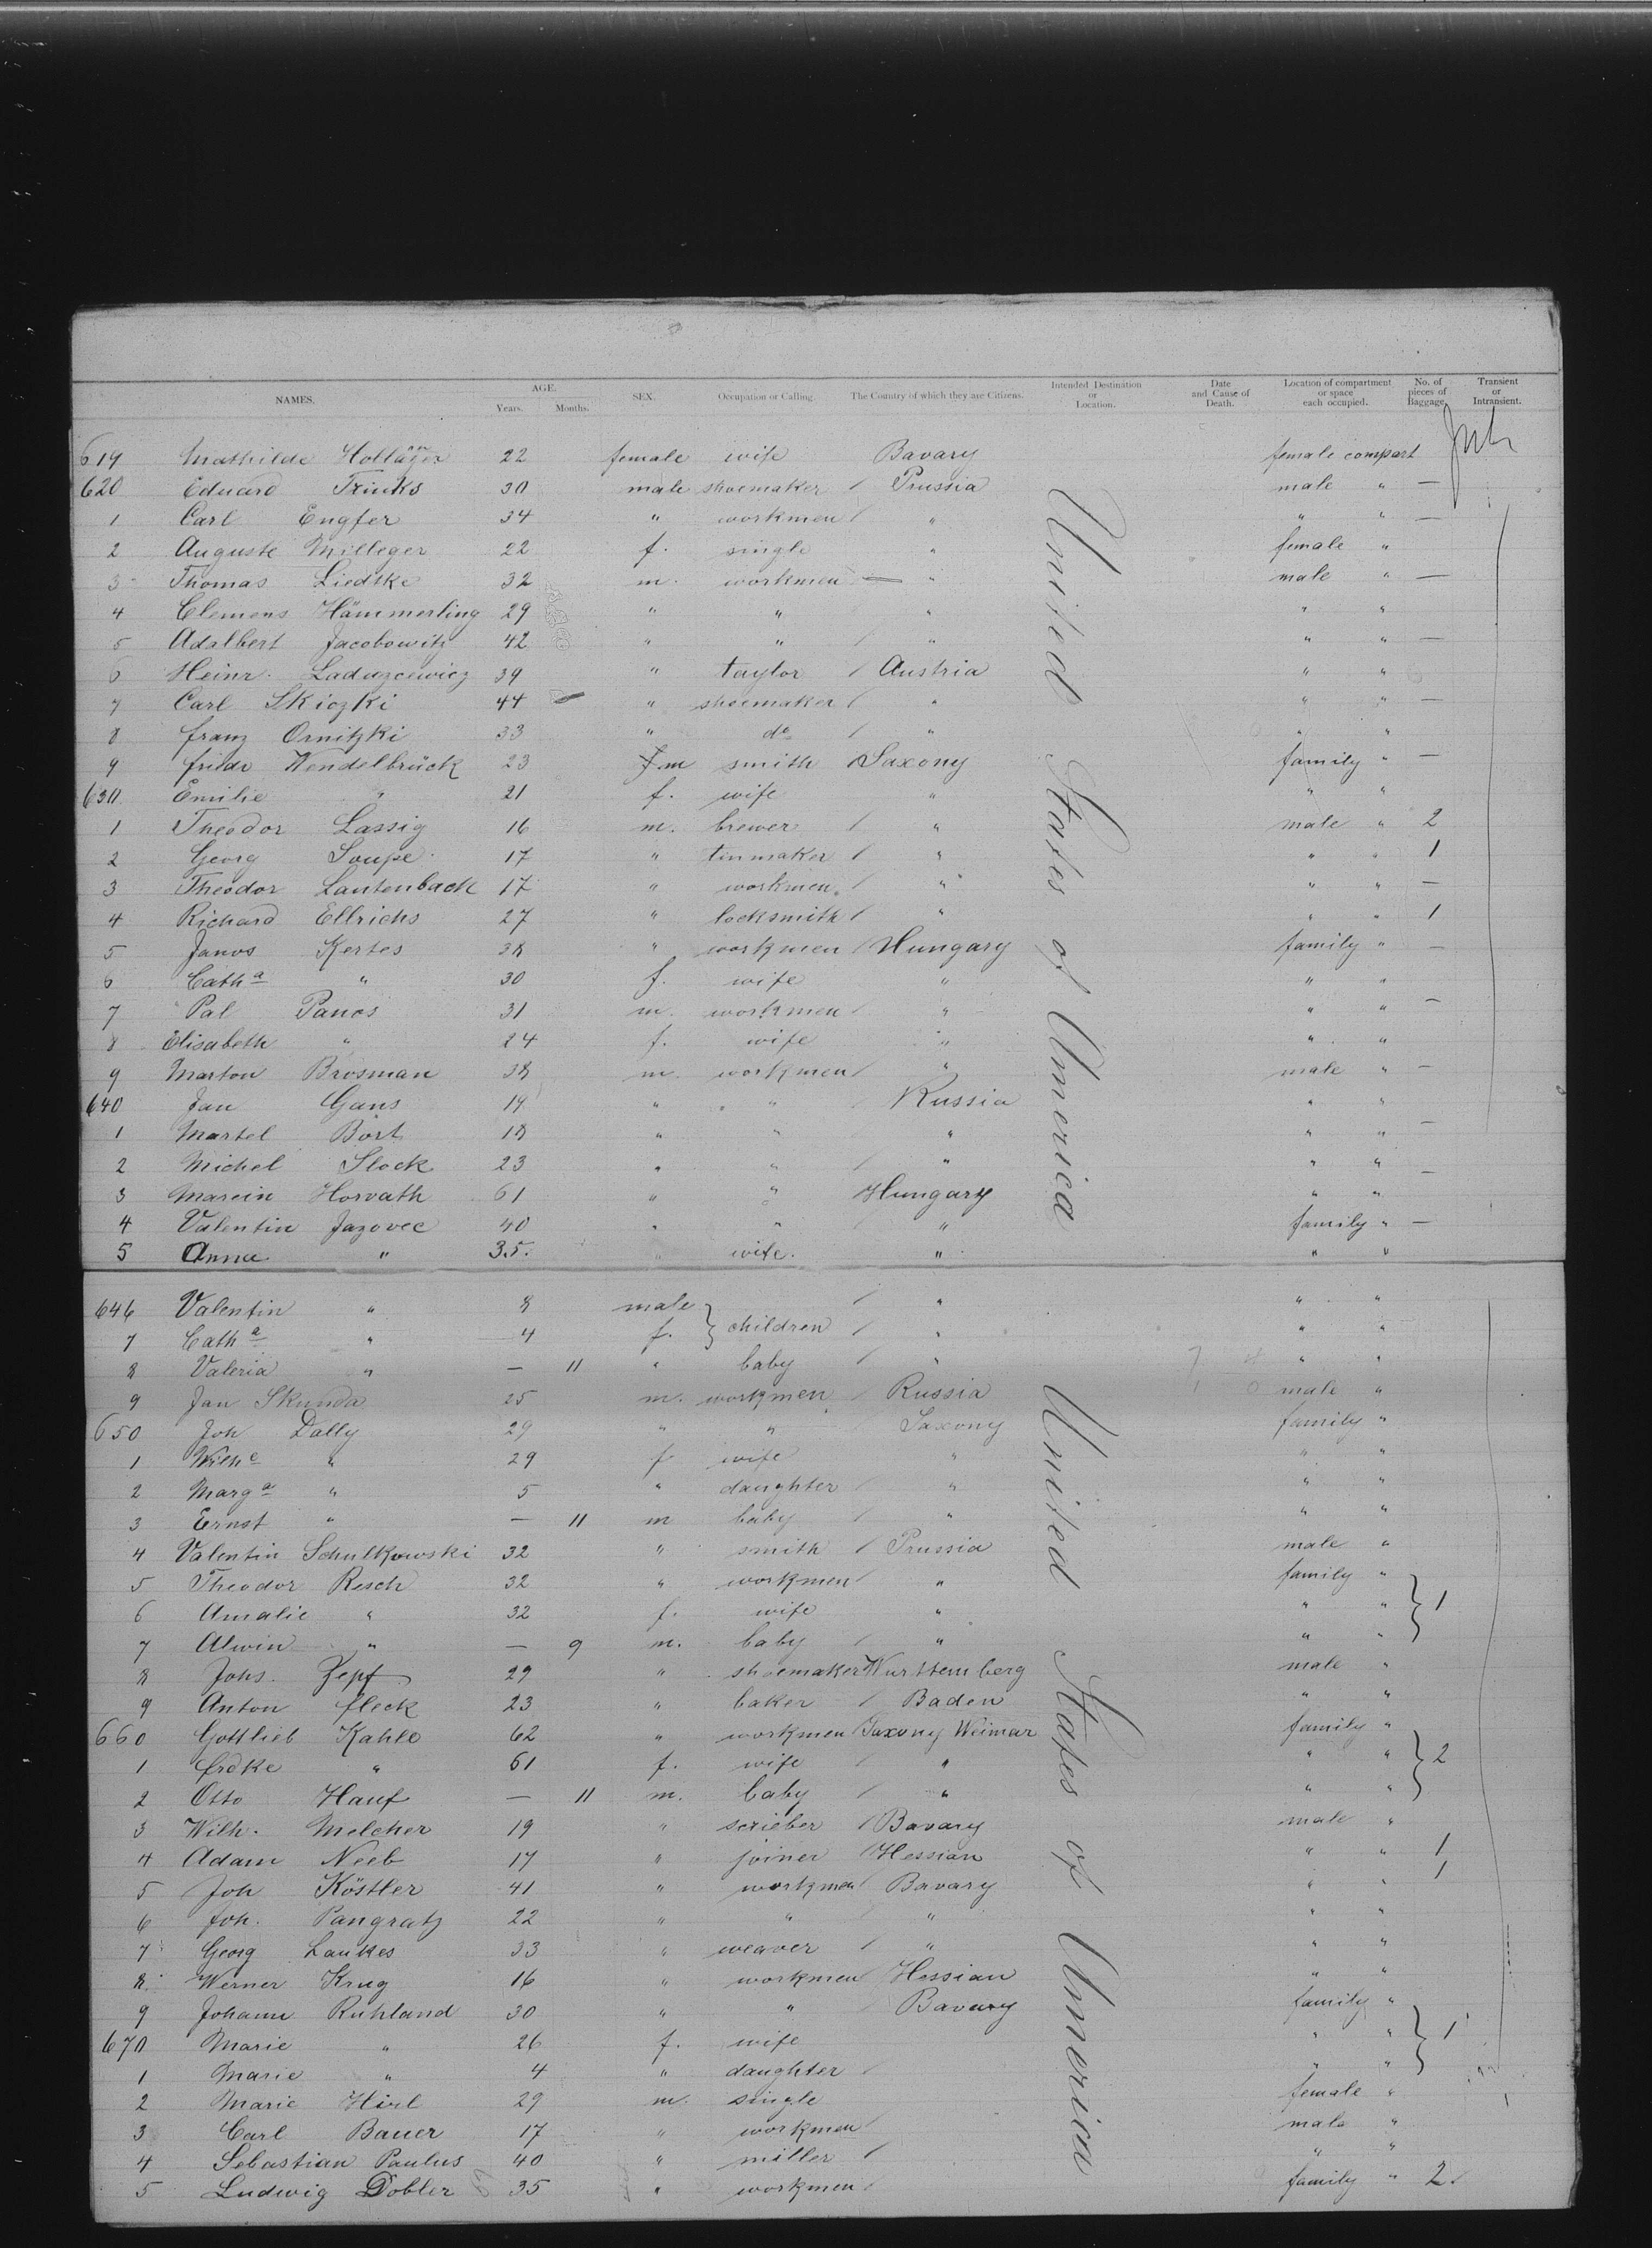 NAMES. AGE. Years. Months. SEX. Occupation or Calling. The Country of which they are Citizens. Intended Destination or Location. Date and Cause of Death. Location of compartment or space each occupied. No. of pieces of Baggage. Transient or Intransient.
619 Mathilde 22 female wife Bavary female compart
620 Eduard Frinks 30 male shoemaker / Prussia male " —
1 Carl Engfer 34 " workmen / " " " —
2 Auguste Milleger 22 f. single " female "
3 Thomas Liedtke 32 m. workmen — " male " —
4 Clemens Hämmerling 29 " " " " "
5 Adalbert Jacobowitz 42 " " / " " " —
6 Heinr. Laduzcewicz 39 " taylor / Austria " "
7 Carl Skiczki 44 " shoemaker / " " " —
8 franz Ornitzki 33 " do / " " "
9 friedr Wendelbrück 23 m smith / Saxony family " —
630 Emilie " 21 f. wife " " "
1 Theodor Lassig 16 m. brewer / " male " 2
2 Georg Soupe 17 " tinmaker / " " " 1
3 Theodor Lautenback 17 " workmen / " " " —
4 Richard Ellrichs 27 " locksmith / " " " 1
5 Janos Kertes 38 " workmen / Hungary family " —
6 Catha " 30 f. wife " " "
7 Pal Panos 31 m. workmen / " " " —
8 Elisabeth " 24 f. wife " " "
9 Marton Brosman 38 m. workmen / " male " —
640 Jan Gans 19 " " Russia " "
1 Martel Bort 18 " " " " " —
2 Michel Slock 23 " " / " " " —
3 Marcin Horvath 61 " " Hungary " "
4 Valentin Jazovec 40 " " " family " —
5 Anna " 35. " wife. " " "
United States of America
646 Valentin " 8 male } children / " " "
7 Catha " 4 f. } / " " "
8 Valeria " — 11 " baby / " " "
9 Jan Skunda 25 m. workmen / Russia male "
650 Joh Dally 29 " " / Saxony family "
1 Wilhe " 29 f wife " " "
2 Marga " 5 " daughter / " " "
3 Ernst " — 11 m baby / " " "
4 Valentin Schulkowski 32 " smith / Prussia male "
5 Theodor Resch 32 " workmen / " family "
6 Amalie " 32 f. wife " " " } 1
7 Alwin " — 9 m. baby / " " "
8 Johs. Zepf 29 " shoemaker Wurttemberg male "
9 Anton fleck 23 " baker / Baden " "
660 Gottlieb Kahle 62 " workmen / Saxony Weimar family "
1 frdke " 61 f. wife / " " " } 2
2 Otto Hauf — 11 m. baby / " " "
3 Wilh. Melcher 19 " scrieber / Bavary male "
4 Adam Neeb 17 " joiner / Hessian " " 1
5 Joh Köstler 41 " workmen / Bavary " " 1
6 Joh. Pangratz 22 " " / " " "
7 Georg Laukes 33 " weaver / " " "
8 Werner Krug 16 " workmen / Hessian " "
9 Johann Ruhland 30 " " / Bavary family "
670 Marie " 26 f. wife " " } 1
1 Marie " 4 " daughter / " "
2 Marie Hirl 29 m. single female "
3 Carl Bauer 17 " workmen / male "
4 Sebastian Paulus 40 " miller / " "
5 Ludwig Dobler 35 " workmen / family " 2
United States of America